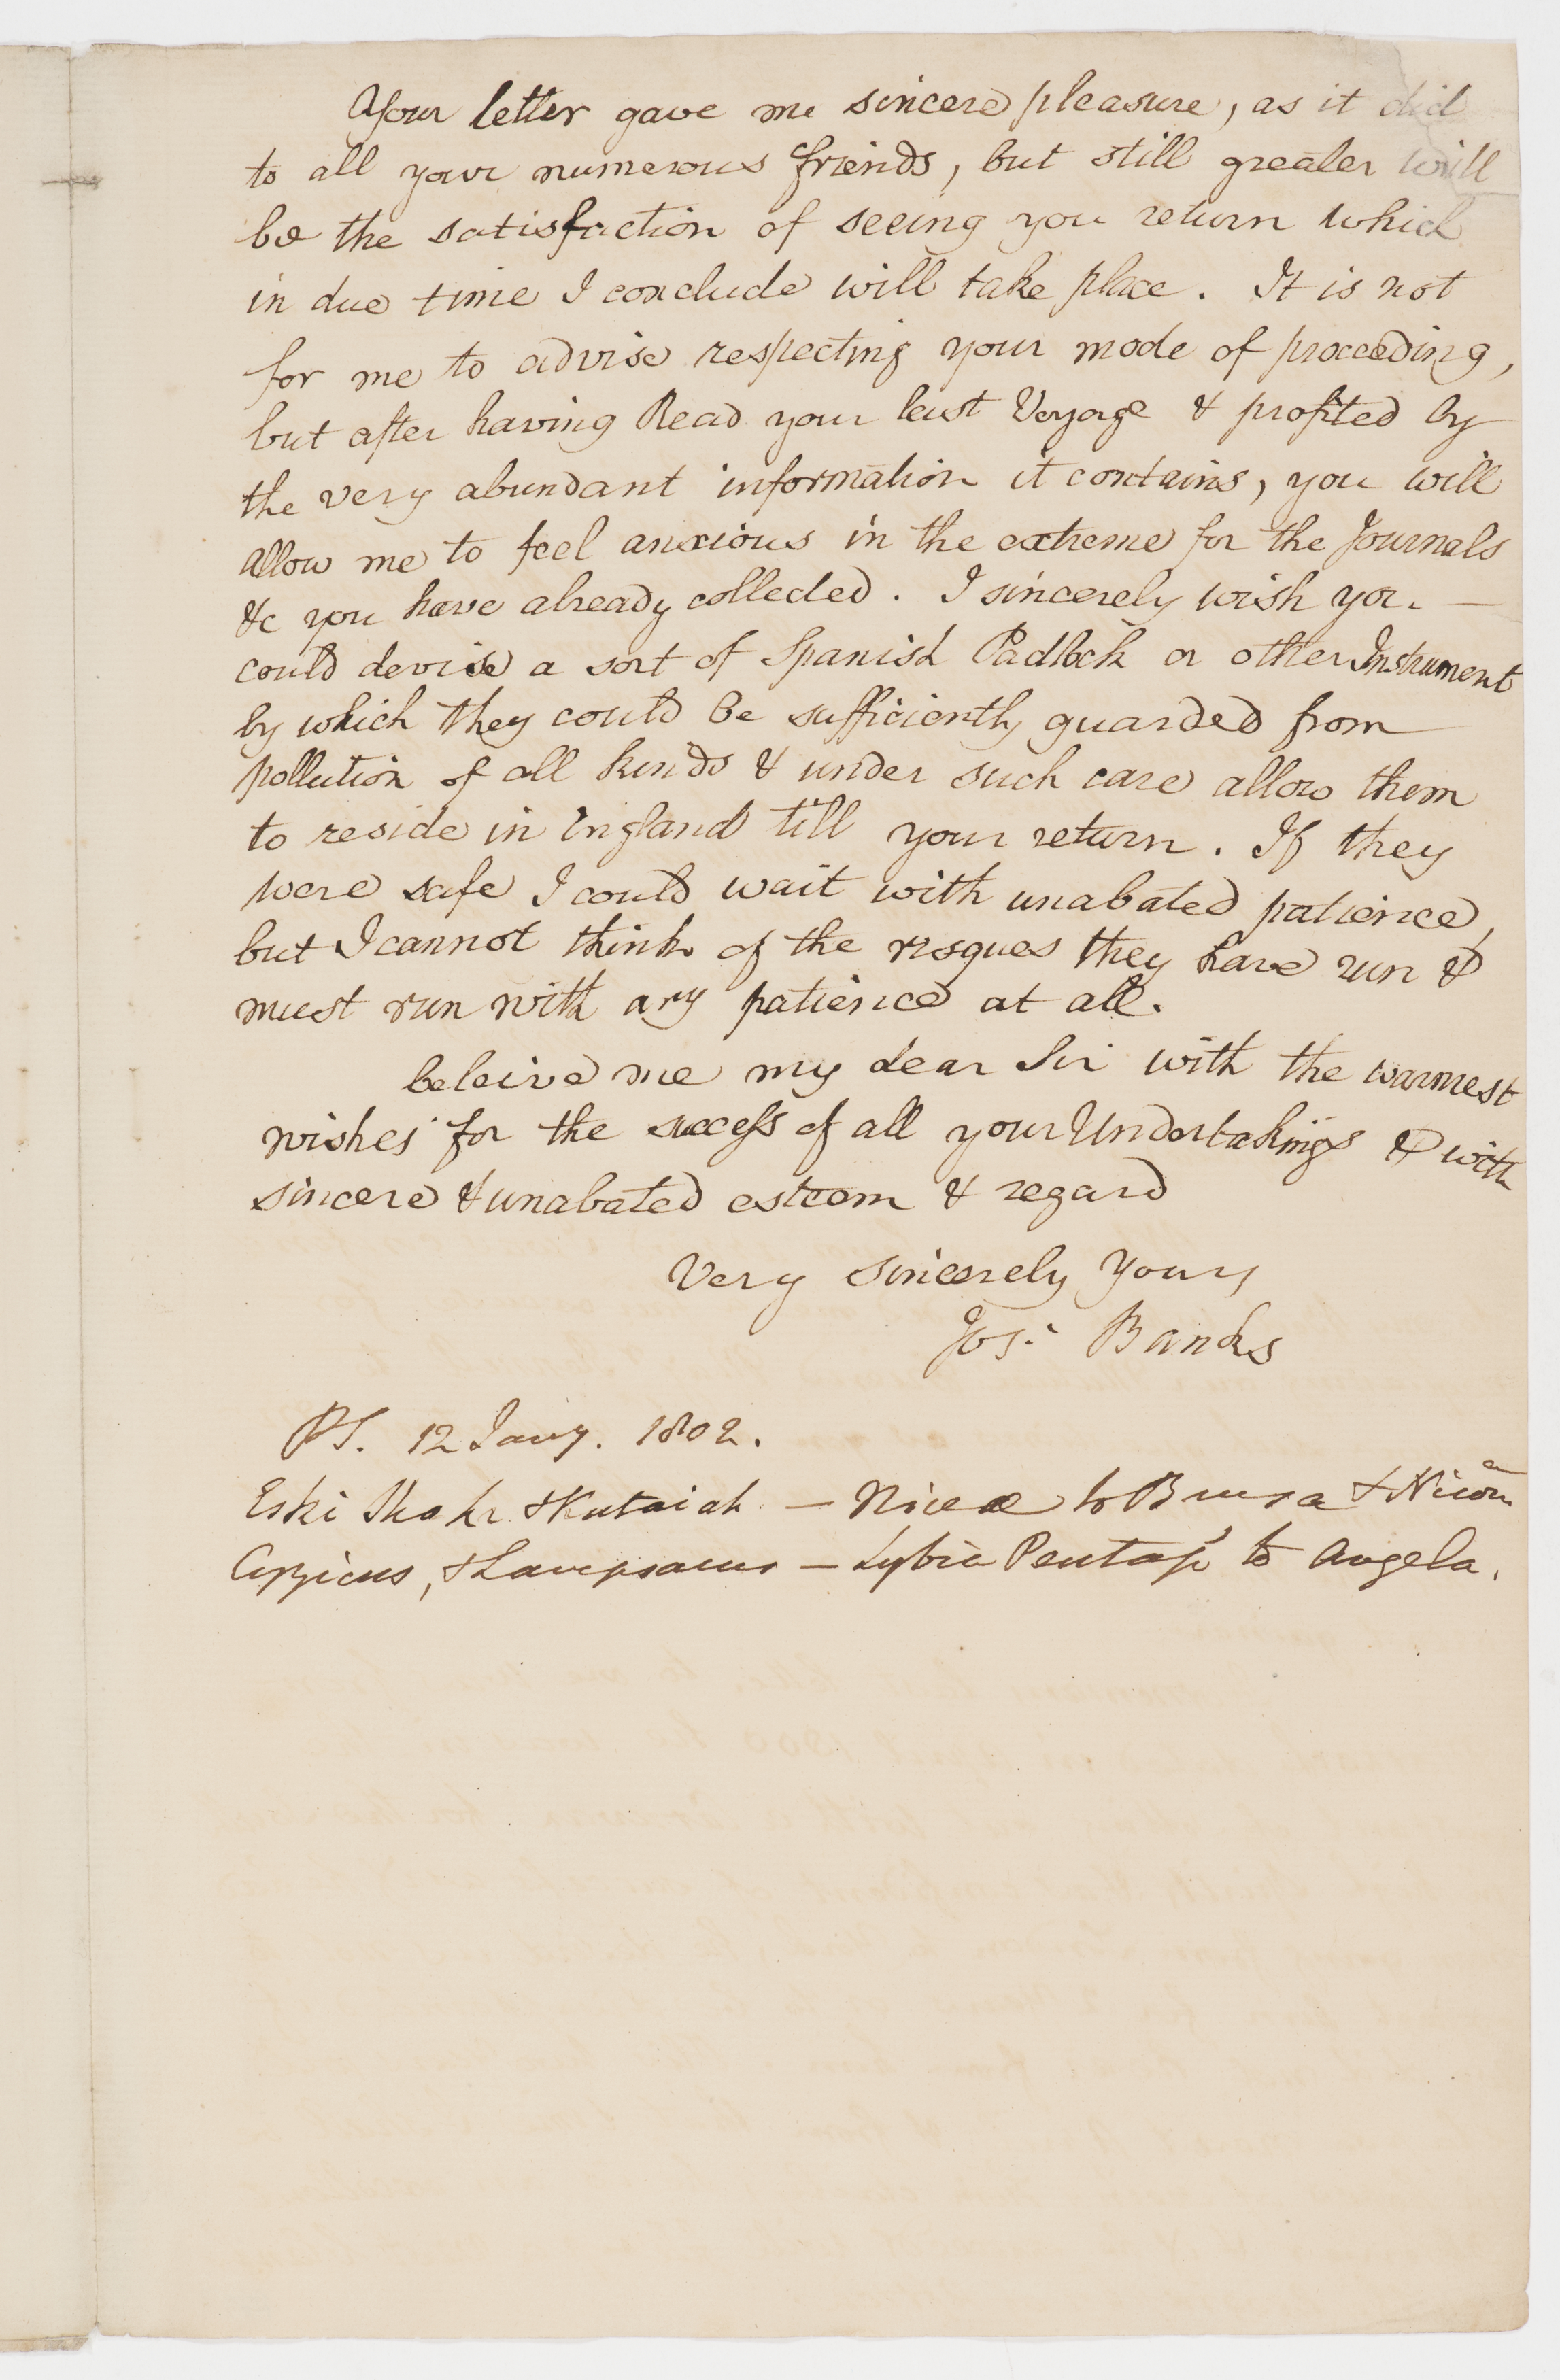 Your letter gave me sincere pleasure, as it did
to all your numerous friends, but still greater will
be the satisfaction of seeing you return which
in due time I conclude will take place. It is not
for me to advise respecting your mode of proceeding,
but after having Read your last Voyage & profited by
the very abundant information it contains, you will
allow me to feel anxious in the extreme for the Journals
&c you have already collected. I sincerely wish you —
could devise a sort of Spanish Padlock or other Instrument
by which they could be sufficiently guarded from
pollution of all kinds & under such care allow them
to reside in England till your return. If they
were safe I could wait with unabated patience,
but I cannot think of the risques they have run &
must run with any patience at all.
beleive me my dear Sir with the warmest
wishes for the success of all your Undertakings & with
sincere & unabated esteem & regard
Very sincerely Yours
Jos. Banks
PS. 12 Jany. 1802.
Eski Shehr & Kutaiah — Nicea to Brusa &
Cyzicus, & Lampsacus — Lybia to Angela.